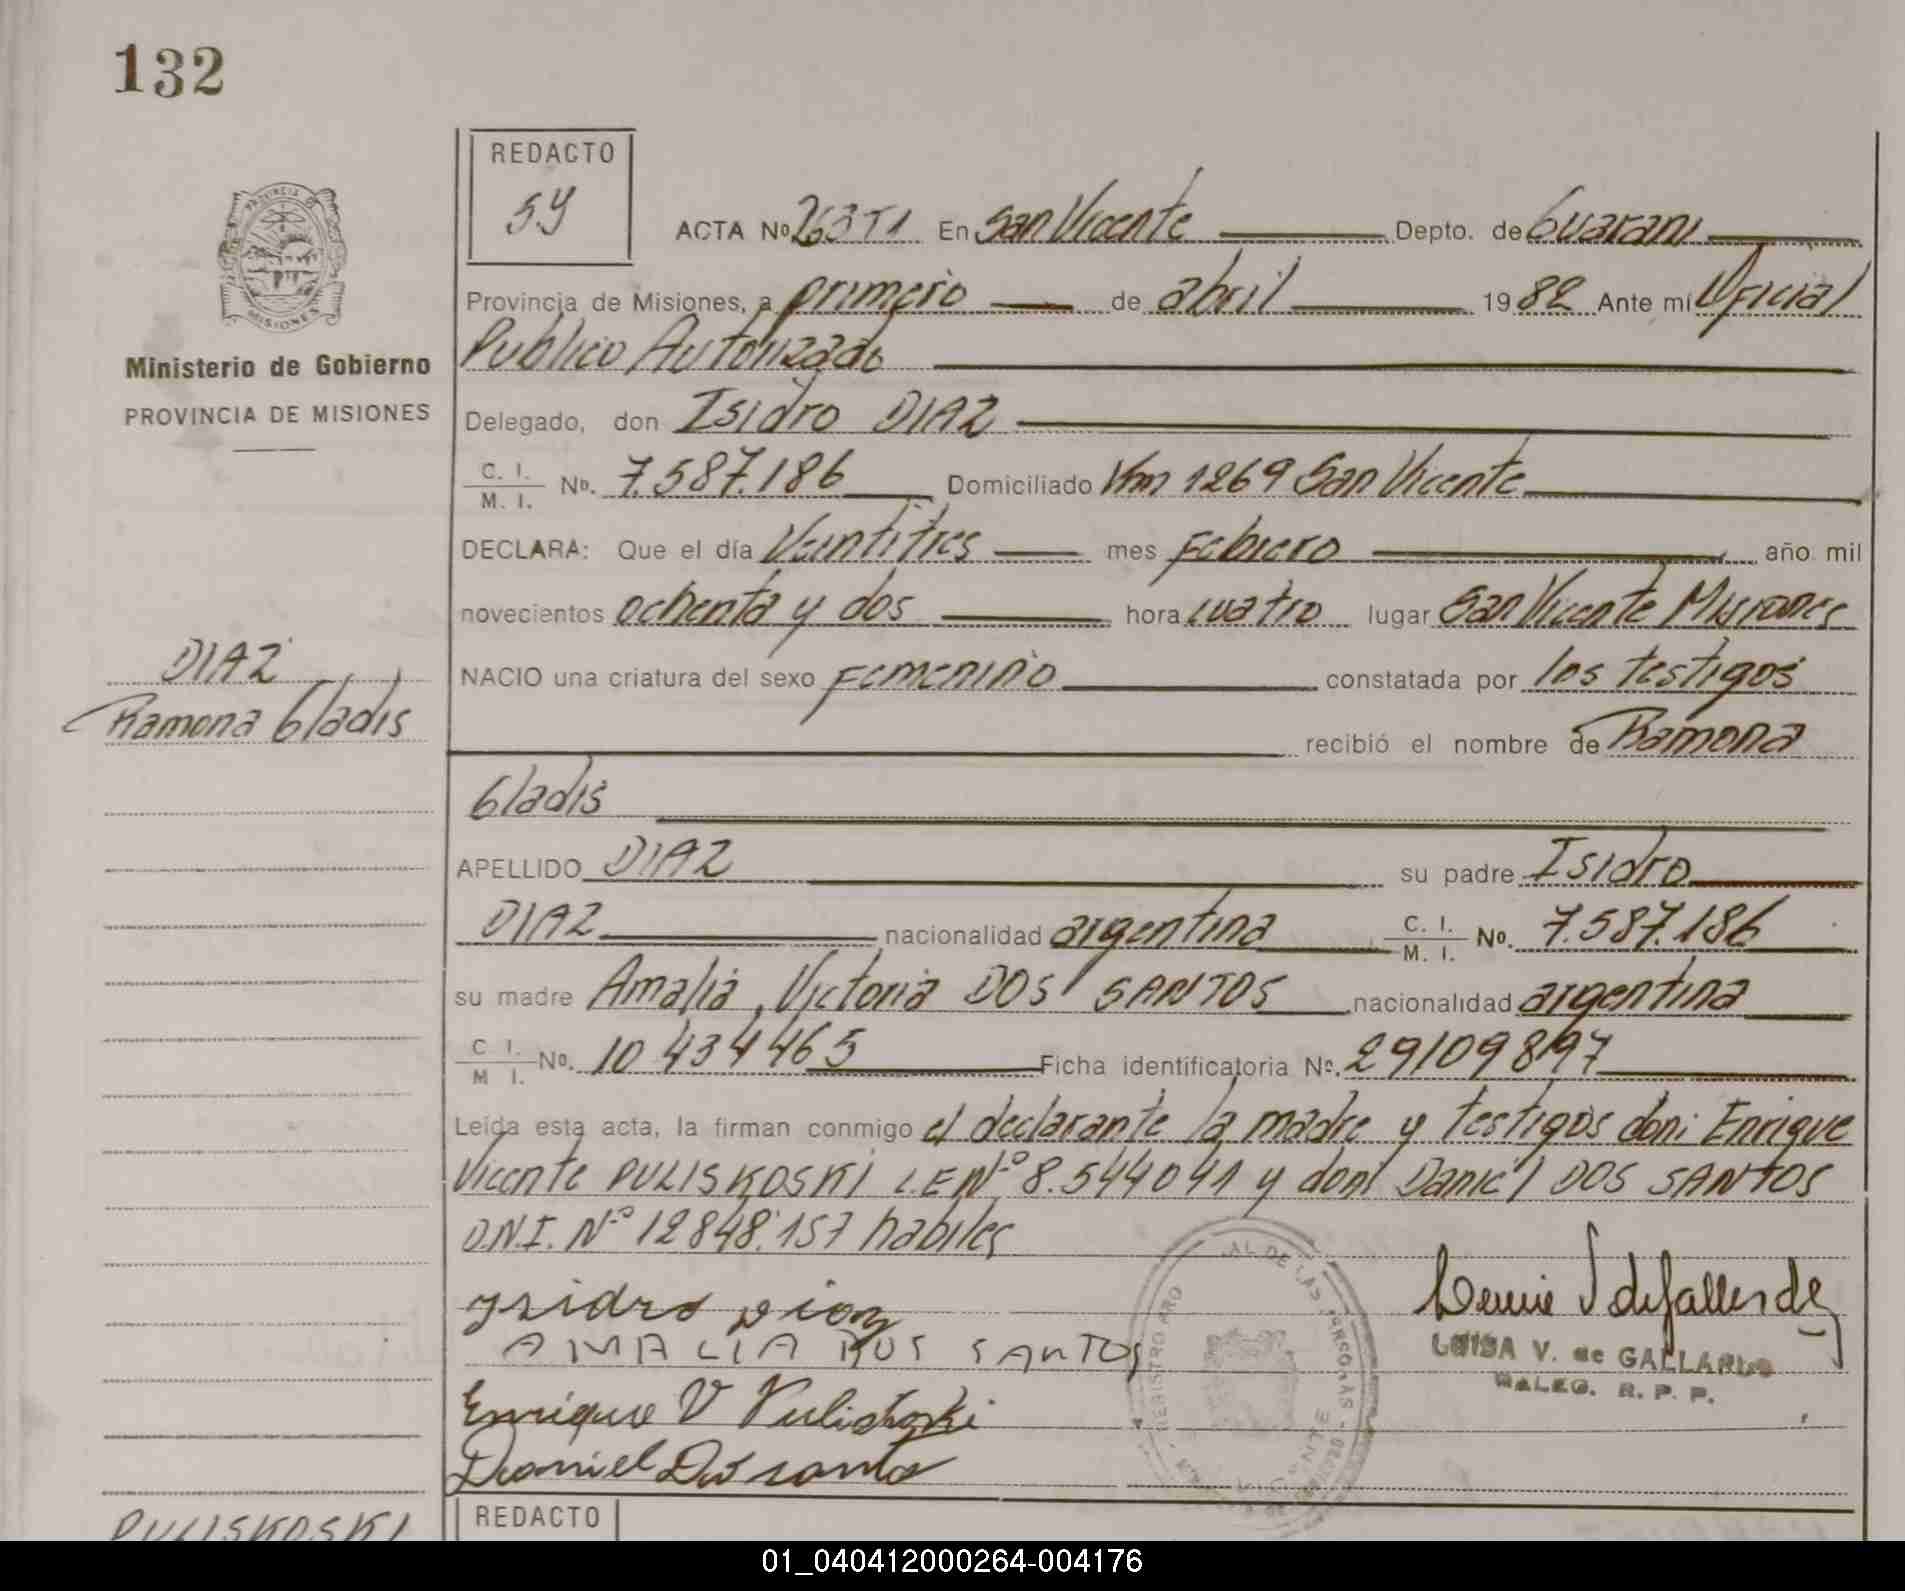 132
REDACTO
59
ACTA Nº 263T1 En San Vicente Depto. de Guarani
Provincia de Misiones, a primero de abril 1982 Ante mí Oficial
Publico Autorizado
Ministerio de Gobierno
PROVINCIA DE MISIONES
Delegado, don Isidro DIAZ
C. I. M. I. Nº. 7.587.186 Domiciliado Km 1269 San Vicente
DECLARA: Que el día Veintitres mes Febrero año mil
novecientos ochenta y dos hora cuatro lugar San Vicente Misiones
DIAZ
Ramona Gladis
NACIO una criatura del sexo Femenino constatada por los testigos
recibió el nombre de Ramona
Gladis
APELLIDO DIAZ su padre Isidro
DIAZ nacionalidad argentina C. I. M. I. Nº. 7.587.186
su madre Amalia Victoria DOS SANTOS nacionalidad argentina
C I. M I. Nº. 10 434465 Ficha identificatoria Nº. 29109897
Leída esta acta, la firman conmigo el declarante la madre y testigos don: Enrique
Vicente PULISKOSKI L.E Nº 8.544041 y don Daniel DOS SANTOS
D.N.I. Nº 12848.157 habiles
Isidro Diaz
AMALIA DOS SANTOS
LUISA V. de GALLARDO
R. P. P.
Enrique V Puliskoski
Daniel Dos santos
PULISKOSKI
REDACTO
01_040412000264-004176